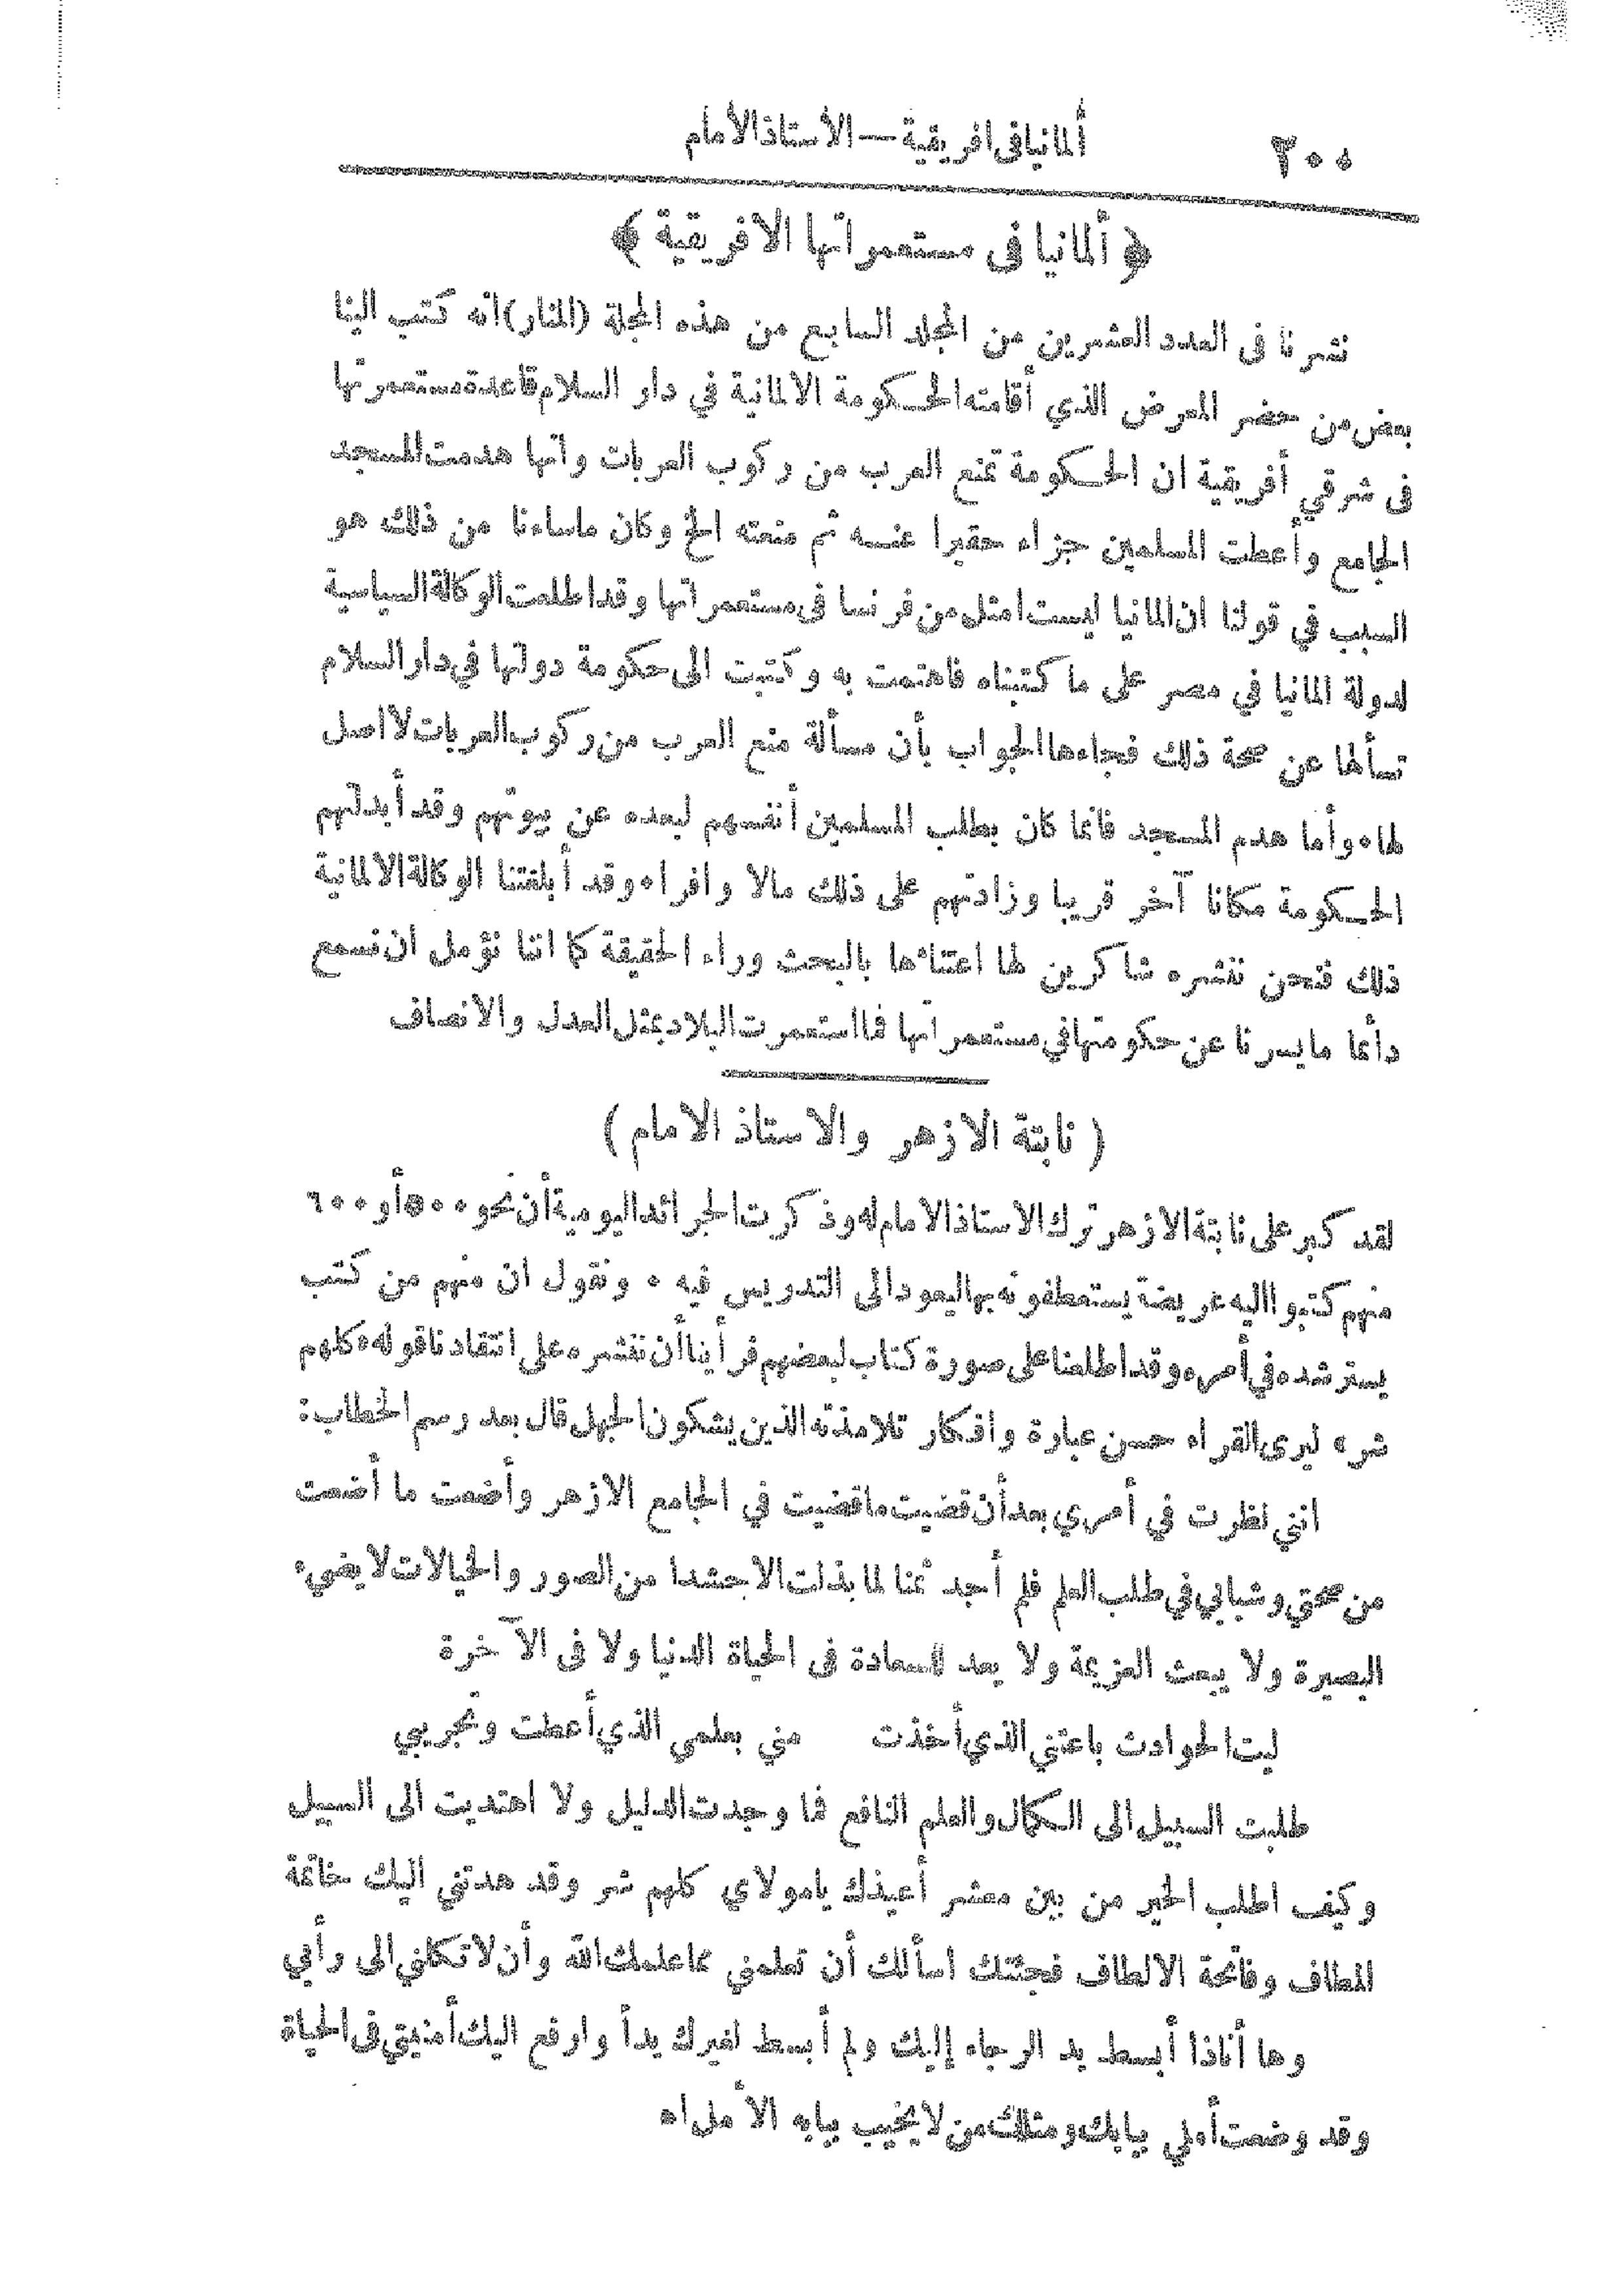 ٢٠٠ ألمانيا فى افريقية — الاستاذ الامام
﴿ ألمانيا فى مستعمراتها الافريقية ﴾
نشرنا فى العدد العشرين من المجلد السابع من هذه المجلة (المنار) انه كتب الينا
بعض من حضر المعرض الذي أقامته الحكومة الالمانية في دار السلام قاعدة مستعمرتها
فى شرقي أفريقية ان الحكومة تمنع العرب من ركوب العربات وانها هدمت المسجد
الجامع وأعطت المسلمين جزاء حقيرا عنه ثم منعته الخ وكان ماساءنا من ذلك هو
السبب في قولنا ان المانيا ليست امثل من فرنسا فى مستعمراتها وقد اطلعت الوكالة السياسية
لدولة المانيا في مصر على ما كتبناه فاهتمت به وكتبت الى حكومة دولتها في دار السلام
تسألها عن صحة ذلك فجاءها الجواب بأن مسألة منع العرب من ركوب العربات لا اصل
لها ٠ وأما هدم المسجد فانما كان بطلب المسلمين أنفسهم لبعده عن بيوتهم وقد أبدلتهم
الحكومة مكانا آخر قريبا وزادتهم على ذلك مالا وافرا ٠ وقد أبلغتنا الوكالة الالمانية
ذلك فنحن ننشره شاكرين لها اعتناءها بالبحث وراء الحقيقة كما اننا نؤمل ان نسمع
دائما مايسرنا عن حكومتها في مستعمراتها فما استعمرت البلاد بمثل العدل والانصاف
( نابتة الازهر والاستاذ الامام )
لقد كبر على نابتة الازهر ترك الاستاذ الامام له وذكرت الجرائد اليومية أن نحو ٥٠٠ أو ٦٠٠
منهم كتبوا اليه عريضة يستعطفونه بها ليعود الى التدريس فيه ٠ ونقول ان منهم من كتب
يسترشده في أمره وقد اطلعنا على صورة كتاب لبعضهم فرأينا أن ننشره على انتقادنا قوله ٠ كلهم
شر ٠ ليرى القراء حسن عبارة وافكار تلامذته الذين يشكون الجهل قال بعد رسم الخطاب :
انني نظرت في أمري بعد أن قضيت ماقضيت في الجامع الازهر وأضعت ما أضعت
من صحتي وشبابي في طلب العلم فلم أجد ثمنا لما بذلت الا حشدا من الصور والخيالات لا يضيء
البصيرة ولا يبعث العزيمة ولا يعد للسعادة فى الحياة الدنيا ولا فى الآخرة
ليت الحوادث باعتني الذي أخذت مني بعلمي الذي أعطت وتجريبي
طلبت السبيل الى الكمال والعلم النافع فما وجدت الدليل ولا اهتديت الى السبيل
وكيف اطلب الخير من بين معشر أعيذك يامولاي كلهم شر وقد هدتني اليك خاتمة
المطاف وفاتحة الالطاف فجئتك اسألك أن تعلمني مما علمك الله وأن لا تكلني الى رأيي
وها أناذا أبسط يد الرجاء إليك ولم أبسط لغيرك يدأ وارفع اليك أمنيتي فى الحياة
وقد وضعت أملي ببابك ومثلك من لا يخيب ببابه الأمل اه